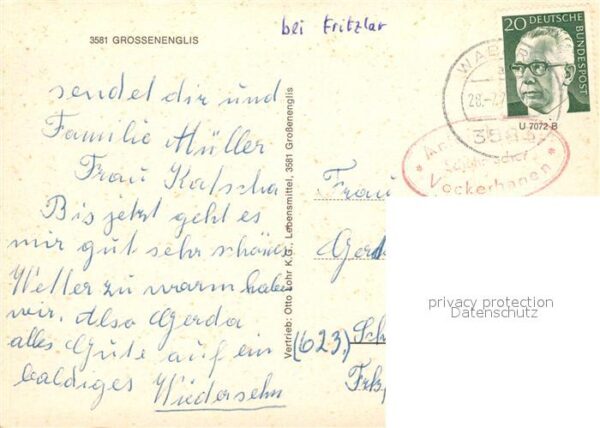 3581 GROSSENENGLIS
bei Fritzlar
20 DEUTSCHE
BUNDESPOST
28.-7.7
U 7072-B
358
Vockerhagen
sendet dir und
Familie Müller
Frau Katscha
Bis jetzt geht es
mir gut sehr schönes
Wetter zu warm haben
wir. Also Gerda
alles Gute auf ein
baldiges Wiedersehn
Vertrieb: Otto Lohr K.G., Lebensmittel, 3581 Großenenglis
Frau
Gerda
(623) Sch
Frk
privacy protection
Datenschutz